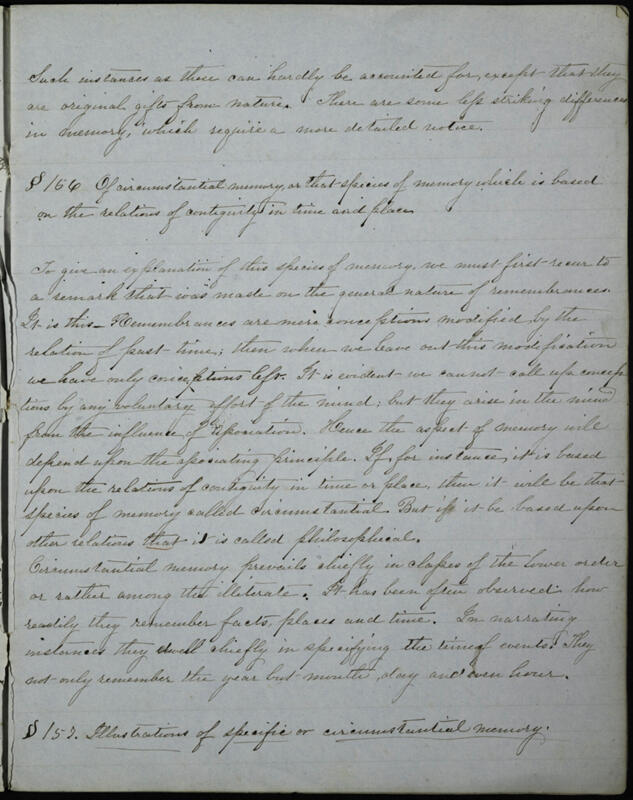 Such instances as these can hardly be accounted for, except that they
are original gifts from nature. There are some less striking differences
in memory, which require a more detailed notice.
§ 156 Of circumstantial memory, or that species of memory which is based
on the relations of contiguity in time and place
To give an explanation of this species of memory, we must first recur to
a remark that was made on the general nature of remembrances.
It is this – Remembrances are mere conceptions modified by the
relation of past time; then when we leave out this modification
we have only conceptions left. It is evident we cannot call up concep
tions by any voluntary effort of the mind; but they arise in the mind
from the influence of association. Hence the aspect of memory will
depend upon the associating principle. If, for instance, it is based
upon the relations of contiguity in time or place, then it will be that
species of memory called circumstantial. But if it be based upon
other relations that it is called philosophical.
Circumstantial memory prevails chiefly in classes of the lower order
or rather among the illiterate. It has been often observed how
readily they remember facts, places and time. In narrating
instances they dwell chiefly in specifying the time of events. They
not only remember the year but month, day and even hour.
§ 157. Illustrations of specific or circumstantial memory.